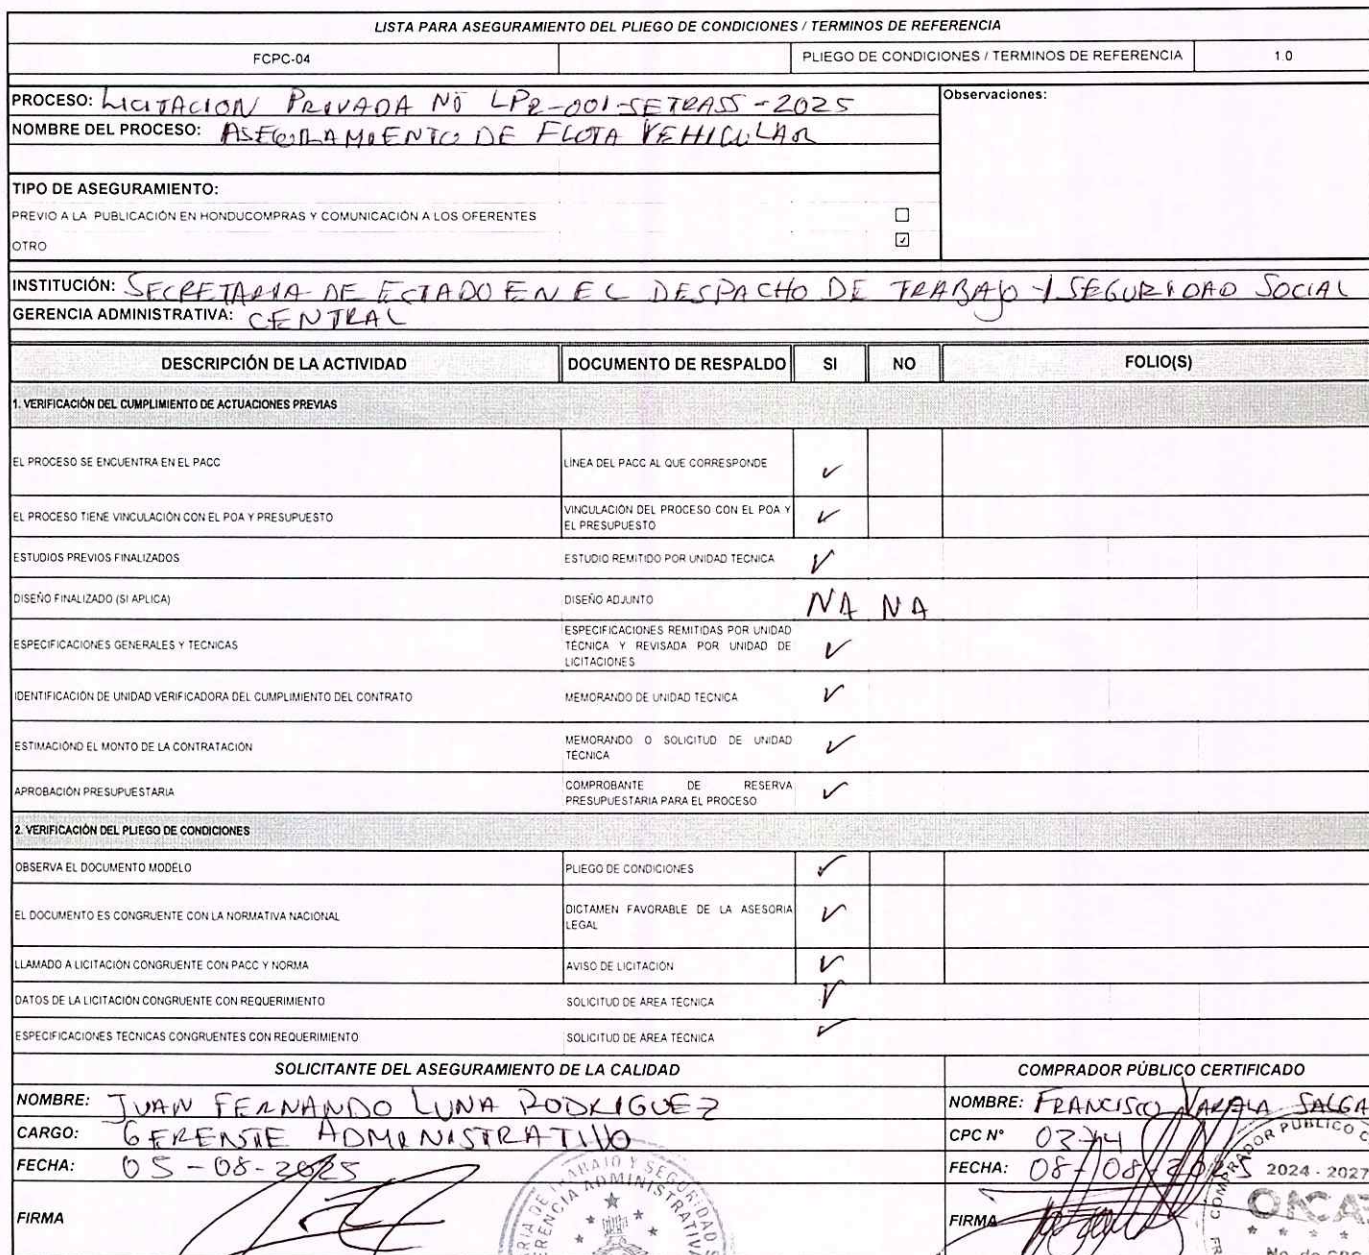 LISTA PARA ASEGURAMIENTO DEL PLIEGO DE CONDICIONES / TERMINOS DE REFERENCIA
FCPC-04 PLIEGO DE CONDICIONES / TERMINOS DE REFERENCIA 1.0
PROCESO: LICITACION PRIVADA NO LPR-001-SETRASS-2025
Observaciones:
NOMBRE DEL PROCESO: ASEGURAMIENTO DE FLOTA VEHICULAR
TIPO DE ASEGURAMIENTO:
PREVIO A LA PUBLICACIÓN EN HONDUCOMPRAS Y COMUNICACIÓN A LOS OFERENTES ☐
OTRO ☑
INSTITUCIÓN: SECRETARIA DE ESTADO EN EL DESPACHO DE TRABAJO Y SEGURIDAD SOCIAL
GERENCIA ADMINISTRATIVA: CENTRAL
DESCRIPCIÓN DE LA ACTIVIDAD DOCUMENTO DE RESPALDO SI NO FOLIO(S)
1. VERIFICACIÓN DEL CUMPLIMIENTO DE ACTUACIONES PREVIAS
EL PROCESO SE ENCUENTRA EN EL PACC LÍNEA DEL PACC AL QUE CORRESPONDE ✓
EL PROCESO TIENE VINCULACIÓN CON EL POA Y PRESUPUESTO VINCULACIÓN DEL PROCESO CON EL POA Y
EL PRESUPUESTO ✓
ESTUDIOS PREVIOS FINALIZADOS ESTUDIO REMITIDO POR UNIDAD TECNICA ✓
DISEÑO FINALIZADO (SI APLICA) DISEÑO ADJUNTO NA NA
ESPECIFICACIONES GENERALES Y TECNICAS ESPECIFICACIONES REMITIDAS POR UNIDAD
TÉCNICA Y REVISADA POR UNIDAD DE
LICITACIONES ✓
IDENTIFICACIÓN DE UNIDAD VERIFICADORA DEL CUMPLIMIENTO DEL CONTRATO MEMORANDO DE UNIDAD TECNICA ✓
ESTIMACIÓND EL MONTO DE LA CONTRATACIÓN MEMORANDO O SOLICITUD DE UNIDAD
TÉCNICA ✓
APROBACIÓN PRESUPUESTARIA COMPROBANTE DE RESERVA
PRESUPUESTARIA PARA EL PROCESO ✓
2. VERIFICACIÓN DEL PLIEGO DE CONDICIONES
OBSERVA EL DOCUMENTO MODELO PLIEGO DE CONDICIONES ✓
EL DOCUMENTO ES CONGRUENTE CON LA NORMATIVA NACIONAL DICTAMEN FAVORABLE DE LA ASESORIA
LEGAL ✓
LLAMADO A LICITACIÓN CONGRUENTE CON PACC Y NORMA AVISO DE LICITACIÓN ✓
DATOS DE LA LICITACIÓN CONGRUENTE CON REQUERIMIENTO SOLICITUD DE AREA TÉCNICA ✓
ESPECIFICACIONES TECNICAS CONGRUENTES CON REQUERIMIENTO SOLICITUD DE AREA TÉCNICA ✓
SOLICITANTE DEL ASEGURAMIENTO DE LA CALIDAD COMPRADOR PÚBLICO CERTIFICADO
NOMBRE: JUAN FERNANDO LUNA RODRIGUEZ NOMBRE: FRANCISCO VARELA SALGA
CARGO: GERENTE ADMINISTRATIVO CPC N°
FECHA: 05-08-2025 FECHA: 08-08-2025
2024 - 2027
FIRMA FIRMA